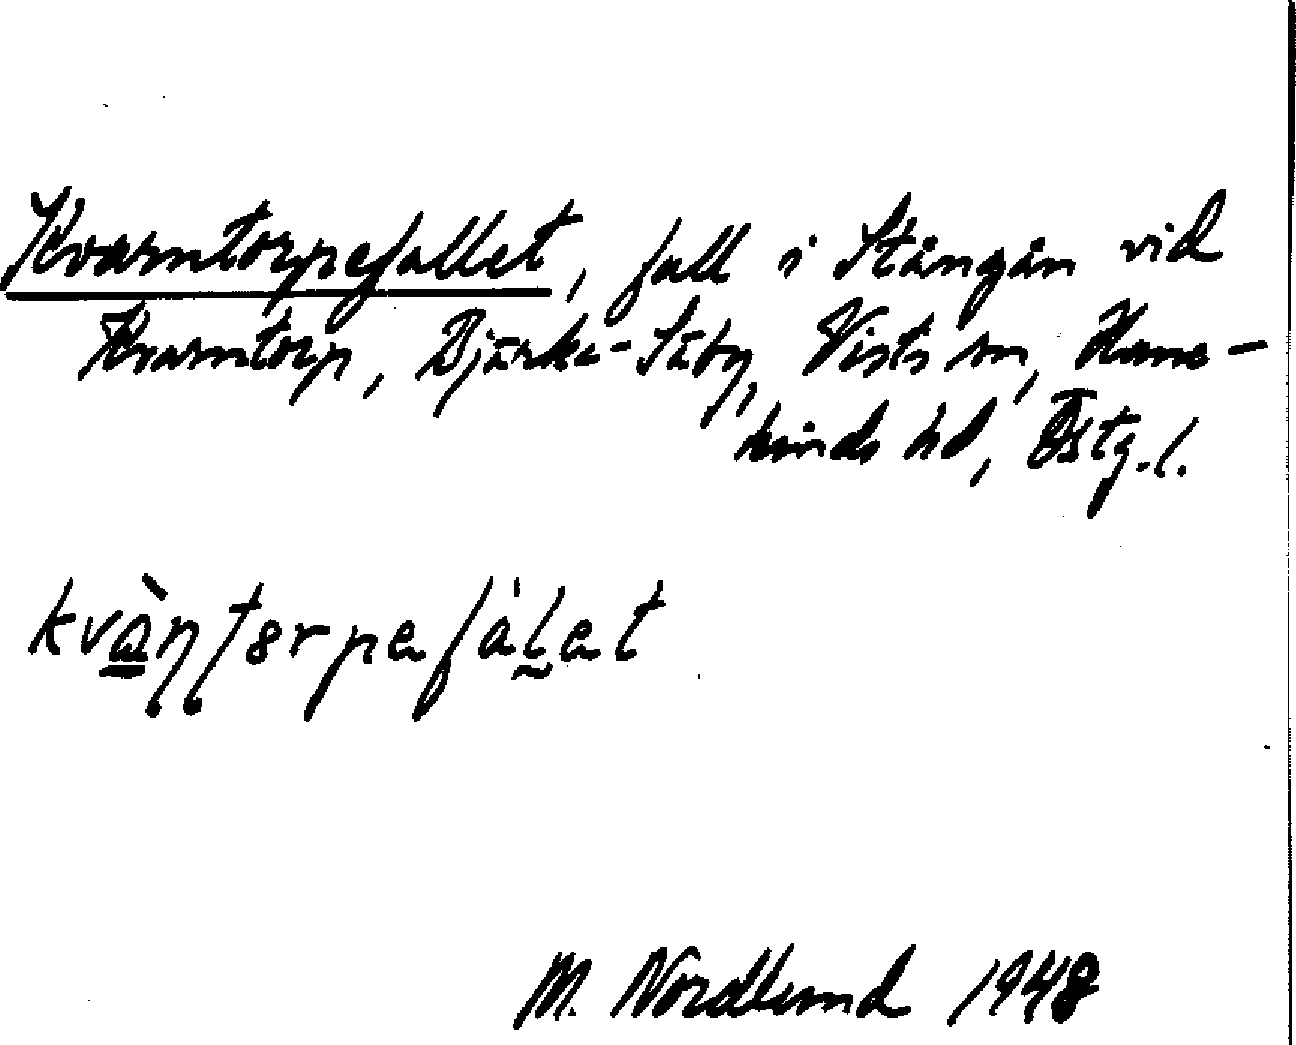 Kvarntorpefallet, fall i Stångån vid
Kvarntorp, Bjärka-Säby, Vists sn, Hane-
kinds hd, Östg.l.
kvàṇʈɵrpefálet
M. Nordlund 1948